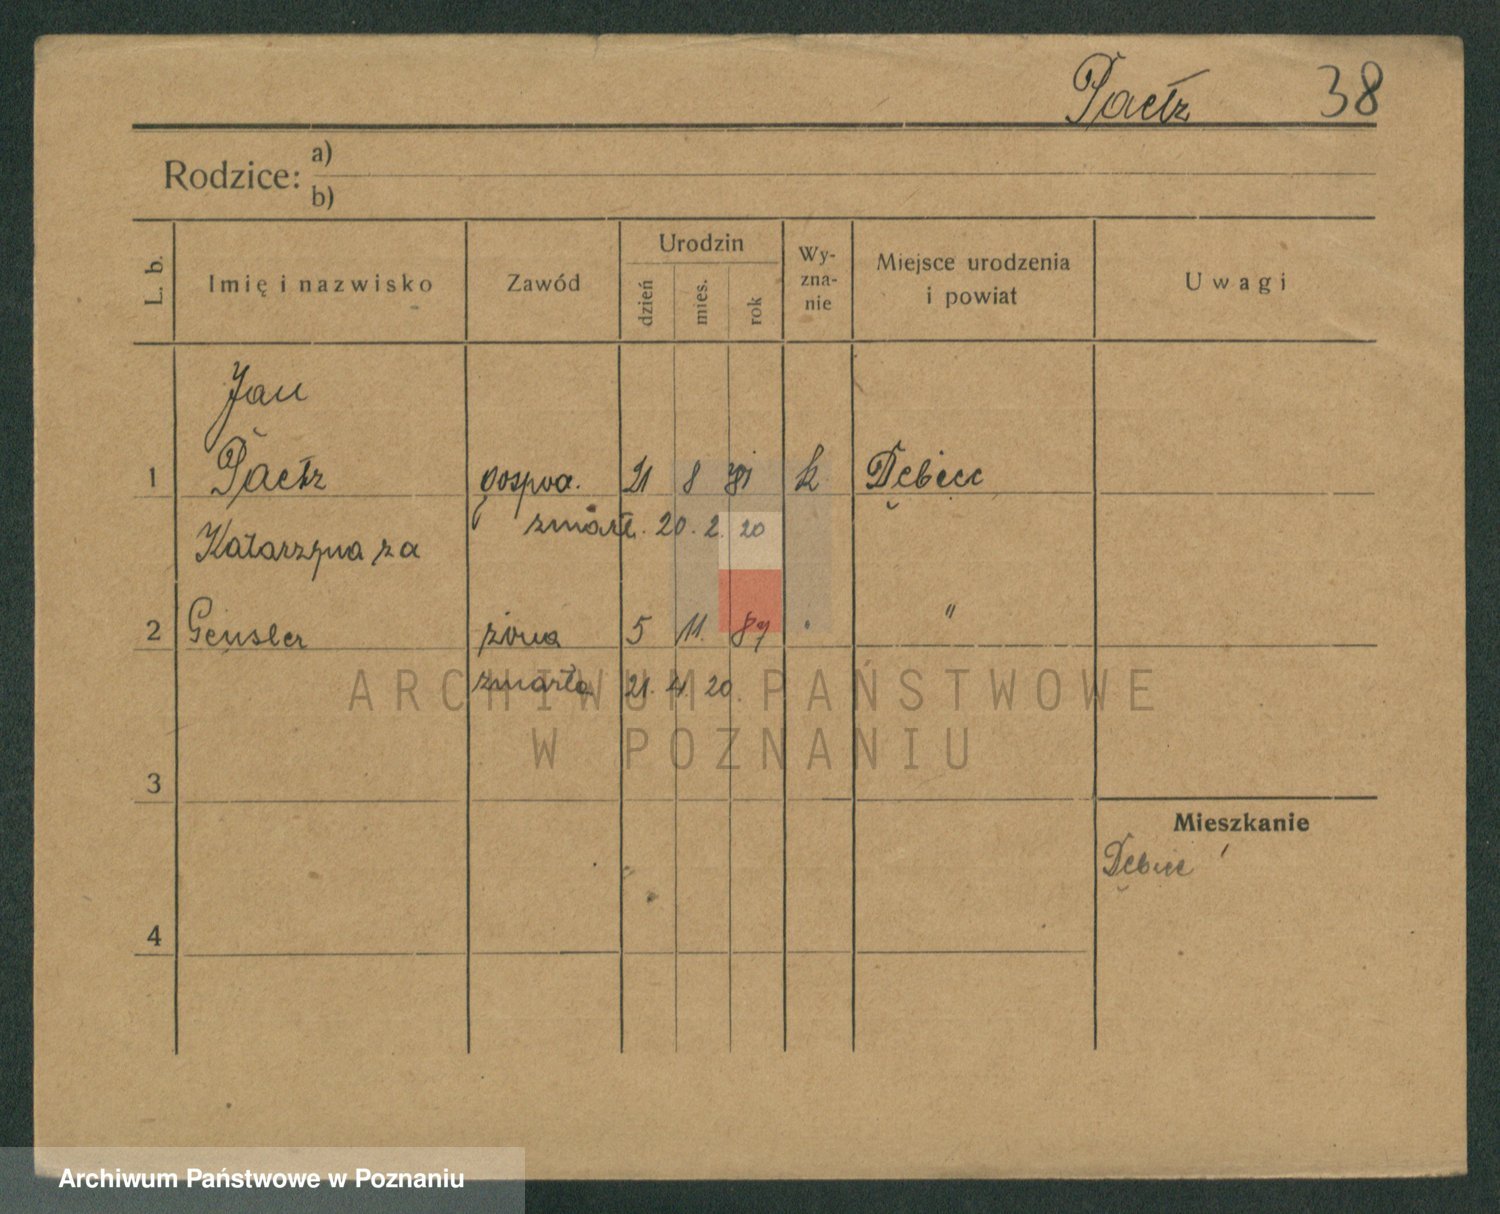 Paetz 38
Rodzice: a)
b)
L. b. Imię i nazwisko Zawód Urodzin dzień mies. rok Wy-zna-nie Miejsce urodzenia i powiat Uwagi
Jan
1 Paetz gospoa. 21 8 k Dębiec
zmarł. 20. 2. 20
Katarzyna za
2 Gensler żona 5 11. 87 " "
zmarła 21. 4. 20.
ARCHIWUM PAŃSTWOWE
W POZNANIU
3
Mieszkanie
Dębiec
4
Archiwum Państwowe w Poznaniu